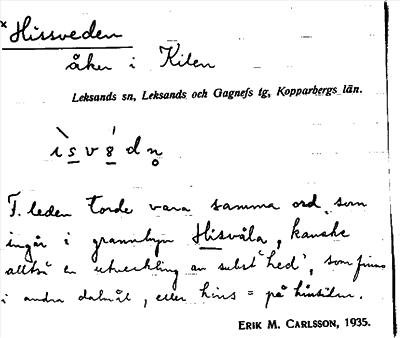 × Hissveden
åker i Kilen
Leksands sn, Leksands och Gagnefs tg, Kopparbergs län.
ì s v 8́ d n̥
F. leden torde vara samma ord som
ingår i grannbyn Hisvåla, kanske
alltså en utveckling av subst 'hed', som finns
i andra dalmål, eller hins = på hinsidan.
ERIK M. CARLSSON, 1935.